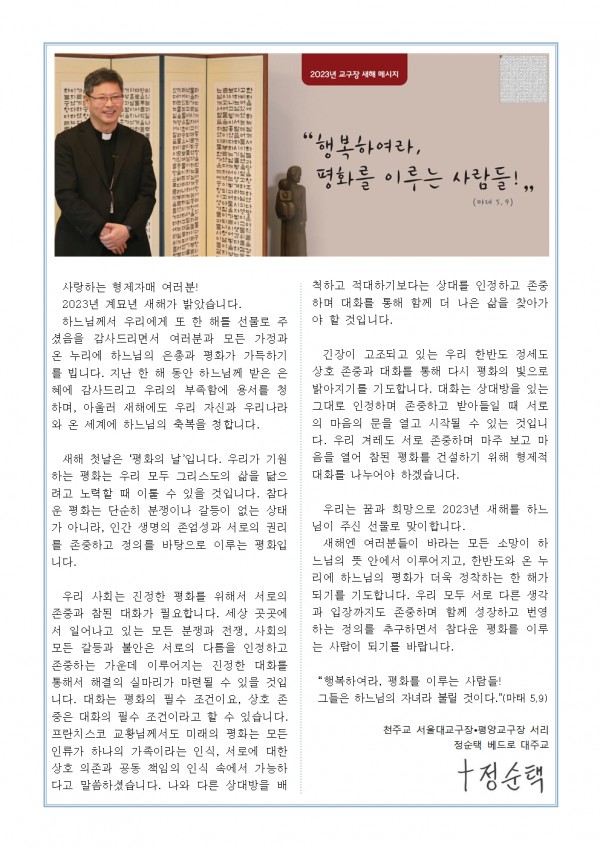 2023년 교구장 새해 메시지
“행복하여라,
평화를 이루는 사람들!„
(마태 5, 9)
사랑하는 형제자매 여러분!
2023년 계묘년 새해가 밝았습니다.
하느님께서 우리에게 또 한 해를 선물로 주
셨음을 감사드리면서 여러분과 모든 가정과
온 누리에 하느님의 은총과 평화가 가득하기
를 빕니다. 지난 한 해 동안 하느님께 받은 은
혜에 감사드리고 우리의 부족함에 용서를 청
하며, 아울러 새해에도 우리 자신과 우리나라
와 온 세계에 하느님의 축복을 청합니다.
새해 첫날은 ‘평화의 날’입니다. 우리가 기원
하는 평화는 우리 모두 그리스도의 삶을 닮으
려고 노력할 때 이룰 수 있을 것입니다. 참다
운 평화는 단순히 분쟁이나 갈등이 없는 상태
가 아니라, 인간 생명의 존엄성과 서로의 권리
를 존중하고 정의를 바탕으로 이루는 평화입
니다.
우리 사회는 진정한 평화를 위해서 서로의
존중과 참된 대화가 필요합니다. 세상 곳곳에
서 일어나고 있는 모든 분쟁과 전쟁, 사회의
모든 갈등과 불안은 서로의 다름을 인정하고
존중하는 가운데 이루어지는 진정한 대화를
통해서 해결의 실마리가 마련될 수 있을 것입
니다. 대화는 평화의 필수 조건이요, 상호 존
중은 대화의 필수 조건이라고 할 수 있습니다.
프란치스코 교황님께서도 미래의 평화는 모든
인류가 하나의 가족이라는 인식, 서로에 대한
상호 의존과 공동 책임의 인식 속에서 가능하
다고 말씀하셨습니다. 나와 다른 상대방을 배
척하고 적대하기보다는 상대를 인정하고 존중
하며 대화를 통해 함께 더 나은 삶을 찾아가
야 할 것입니다.
긴장이 고조되고 있는 우리 한반도 정세도
상호 존중과 대화를 통해 다시 평화의 빛으로
밝아지기를 기도합니다. 대화는 상대방을 있는
그대로 인정하며 존중하고 받아들일 때 서로
의 마음의 문을 열고 시작될 수 있는 것입니
다. 우리 겨레도 서로 존중하며 마주 보고 마
음을 열어 참된 평화를 건설하기 위해 형제적
대화를 나누어야 하겠습니다.
우리는 꿈과 희망으로 2023년 새해를 하느
님이 주신 선물로 맞이합니다.
새해엔 여러분들이 바라는 모든 소망이 하
느님의 뜻 안에서 이루어지고, 한반도와 온 누
리에 하느님의 평화가 더욱 정착하는 한 해가
되기를 기도합니다. 우리 모두 서로 다른 생각
과 입장까지도 존중하며 함께 성장하고 번영
하는 정의를 추구하면서 참다운 평화를 이루
는 사람이 되기를 바랍니다.
“행복하여라, 평화를 이루는 사람들!
그들은 하느님의 자녀라 불릴 것이다.”(마태 5,9)
천주교 서울대교구장•평양교구장 서리
정순택 베드로 대주교
†정순택